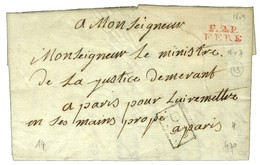 a Monseigneur
P.2.P.
FERE
Monseigneur le ministre
de la justice demerant
a paris pour Luiremettre
en ses mains propre
a paris
14